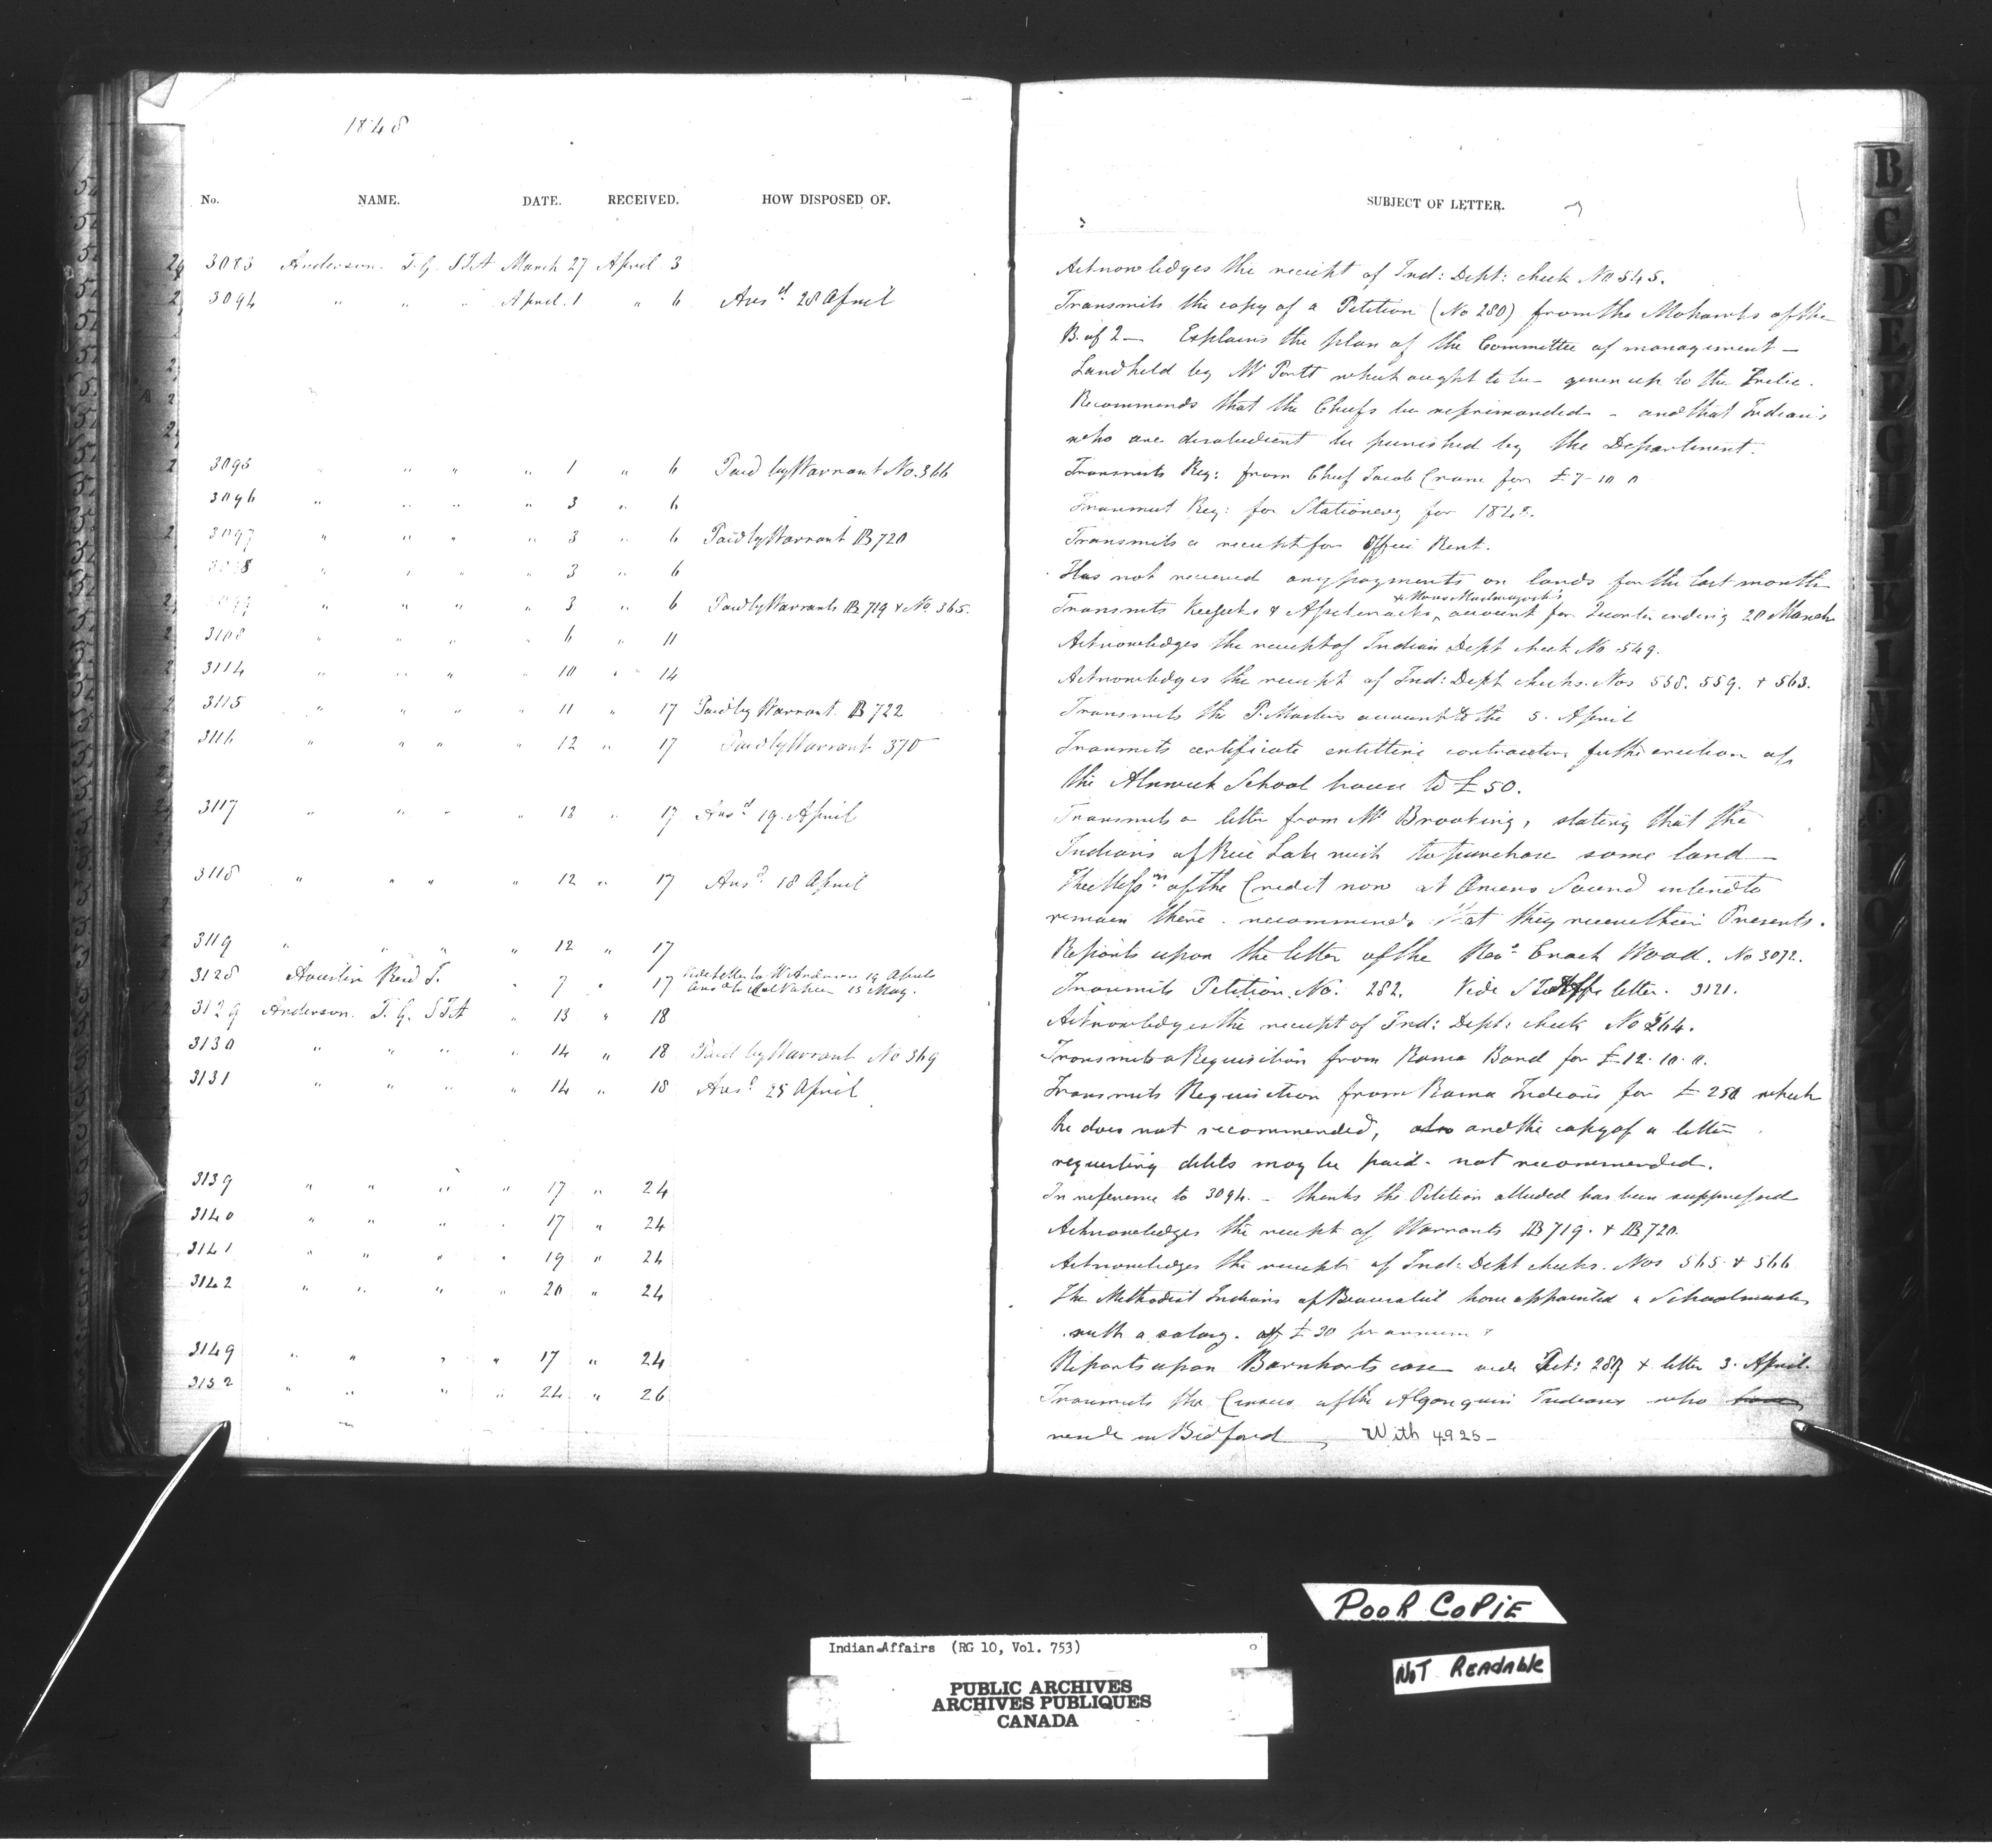 1848
No. NAME. DATE. RECEIVED. HOW DISPOSED OF.
3083 Anderson. T. G. STA March 27 April 3
3094 " " " April 1 " 6 Ansd 28 April
3095 " " " 1 " 6 Paid by Warrant No. 366
3096 " " " 3 " 6
3097 " " " 3 " 6 Paid by Warrant B 720
" " " 3 " 6
" " " 3 " 6 Paid by Warrants B 719 & No. 365.
3108 " " " 6 " 11
3114 " " " 10 " 14
3115 " " " 11 " 17 Paid by Warrant B 722
3116 " " " 12 " 17 Paid by Warrant 370
3117 " " " 13 " 17 Ansd 19 April
3118 " " " 12 " 17 Ansd. 18 April
3119 " " " 12 " 17
3128 Revd J. " 7 " 17 Vide letter to Mr Anderson 19 April &
15 May.
3129 Anderson. T. G. STA " 13 " 18
3130 " " " 14 " 18 Paid by Warrant No 369
3131 " " " 14 " 18 Ansd. 25 April
3139 " " " 17 " 24
3140 " " " 17 " 24
3141 " " " 19 " 24
3142 " " " 20 " 24
3149 " " " 17 " 24
3152 " " " 24 " 26
SUBJECT OF LETTER.
Acknowledges the receipt of Ind: Dept: check No 545.
Transmits the copy of a Petition (No 280) from the Mohawks of the
B. of 2 — Explains the plan of the Committee of management —
Land held by Mr which ought to be given up to the
Recommends that the Chiefs be reprimanded - and that Indians
who are disobedient be punished by the Department.
Transmits Req: from Chief Jacob Crane for £7-10 0
Transmit Req: for Stationery for 1848.
Transmits a receipt for Office Rent.
Has not received any payments on lands for the last month
Transmits & account for Quarter ending 20 March
Acknowledges the receipt of Indian Dept check No 549.
Acknowledges the receipt of Ind: Dept checks. Nos 558. 559. & 563.
Transmits the P. Masters account to the 5. April
Transmits certificate entitling contractor for the erection of
the Alnwick School house to £50.
Transmits a letter from Mr Brooking, stating that the
Indians of Rice Lake wish to purchase some land —
of the Credit now at Owens Sound intend to
remain there. recommends that they receive their Presents.
Reports upon the letter of the Revd. Enoch Wood. No 3072.
Transmits Petition No. 282. Vide letter. 3121.
Acknowledges the receipt of Ind: Dept: check No 564.
Transmits a Requisition from Rama Band for £12.10.0.
Transmits Requisition from Rama Indians for £250 which
he does not recommended, also and the copy of a letter
requesting debts may be paid. not recommended.
In reference to 3094. - thinks the Petition alluded has been suppressed
Acknowledges the receipt of Warrants B 719. & B 720.
Acknowledges the receipt of Ind: Dept checks. Nos 565 & 566
The Methodist Indians of have appointed a Schoolmaster
with a salary. of £30 per annum
Reports upon Barnharts case vide Pet: & letter 3. April.
Transmits the Census of the Algonquin Indians who
reside in Bedford — With 4925 -
B
C
D
E
F
G
H
POOR COPIE
NOT READABLE
Indian Affairs (RG 10, Vol. 753)
PUBLIC ARCHIVES
ARCHIVES PUBLIQUES
CANADA